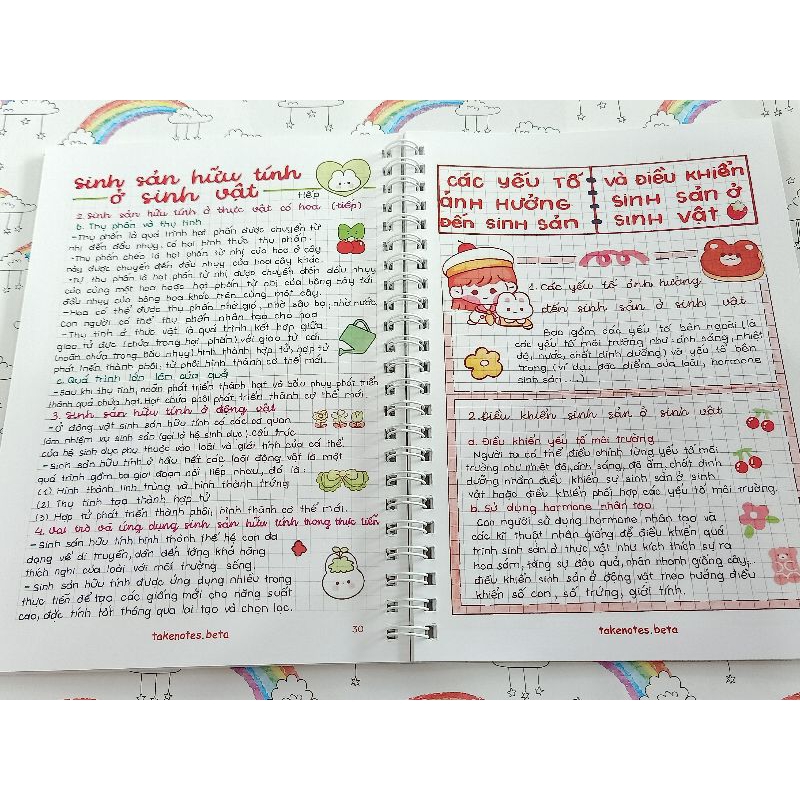 Sinh sản hữu tính
ở sinh vật
tiếp
2. Sinh sản hữu tính ở thực vật có hoa (tiếp)
b. Thụ phấn và thụ tinh
- Thụ phấn là quá trình hạt phấn được chuyển từ
nhị đến đầu nhụy. Có hai hình thức thụ phấn:
- Thụ phấn chéo là hạt phấn từ nhị của hoa ở cây
này được chuyển đến đầu nhụy của hoa cây khác.
- Tự thụ phấn là hạt phấn từ nhị được chuyển đến đầu nhụy
của cùng một hoa hoặc hạt phấn từ nhị của bông này tới
đầu nhụy của bông hoa khác trên cùng một cây.
- Hoa có thể được thụ phấn nhờ gió, nhờ sâu bọ, nhờ nước,
con người có thể thụ phấn nhân tạo cho hoa
- Thụ tinh ở thực vật là quá trình kết hợp giữa
giao tử đực (chứa trong hạt phấn) với giao tử cái
(noãn chứa trong bầu nhụy) hình thành hợp tử, hợp tử
phát triển thành phôi, từ phôi hình thành cơ thể mới.
c. Quá trình lớn lên của quả
- Sau khi thụ tinh, noãn phát triển thành hạt và bầu nhụy phát triển
thành quả chứa hạt. Hạt chứa phôi phát triển thành cơ thể mới.
3. Sinh sản hữu tính ở động vật
- Ở động vật sinh sản hữu tính có các cơ quan
làm nhiệm vụ sinh sản (gọi là hệ sinh dục). Cấu trúc
của hệ sinh dục phụ thuộc vào loài và giới tính của cá thể.
- Sinh sản hữu tính ở hầu hết các loài động vật là một
quá trình gồm ba giai đoạn nối tiếp nhau, đó là:
(1) Hình thành tinh trùng và hình thành trứng
(2) Thụ tinh tạo thành hợp tử
(3) Hợp tử phát triển thành phôi, hình thành cơ thể mới.
4. Vai trò và ứng dụng sinh sản hữu tính trong thực tiễn
- Sinh sản hữu tính hình thành thế hệ con đa
dạng về di truyền, dẫn đến tăng khả năng
thích nghi của loài với môi trường sống.
- Sinh sản hữu tính được ứng dụng nhiều trong
thực tiễn để tạo các giống mới cho năng suất
cao, đặc tính tốt thông qua lai tạo và chọn lọc.
takenotes.beta
30
Các yếu tố và điều khiển
ảnh hưởng sinh sản ở
đến sinh sản sinh vật
1. Các yếu tố ảnh hưởng
đến sinh sản ở sinh vật
Bao gồm các yếu tố bên ngoài (là
các yếu tố môi trường như ánh sáng, nhiệt
độ, nước, chất dinh dưỡng) và yếu tố bên
trong (ví dụ: đặc điểm của loài, hormone
sinh sản ...).
2. Điều khiển sinh sản ở sinh vật
a. Điều khiển yếu tố môi trường
Người ta có thể điều chỉnh từng yếu tố môi
trường như nhiệt độ, ánh sáng, độ ẩm, chất dinh
dưỡng nhằm điều khiển sự sinh sản ở sinh
vật hoặc điều khiển phối hợp các yếu tố môi trường.
b. Sử dụng hormone nhân tạo
Con người sử dụng hormone nhân tạo và
các kĩ thuật nhân giống để điều khiển quá
trình sinh sản ở thực vật như kích thích sự ra
hoa sớm, tăng sự đậu quả, nhân nhanh giống cây;
điều khiển sinh sản ở động vật theo hướng điều
khiển số con, số trứng, giới tính.
takenotes.beta